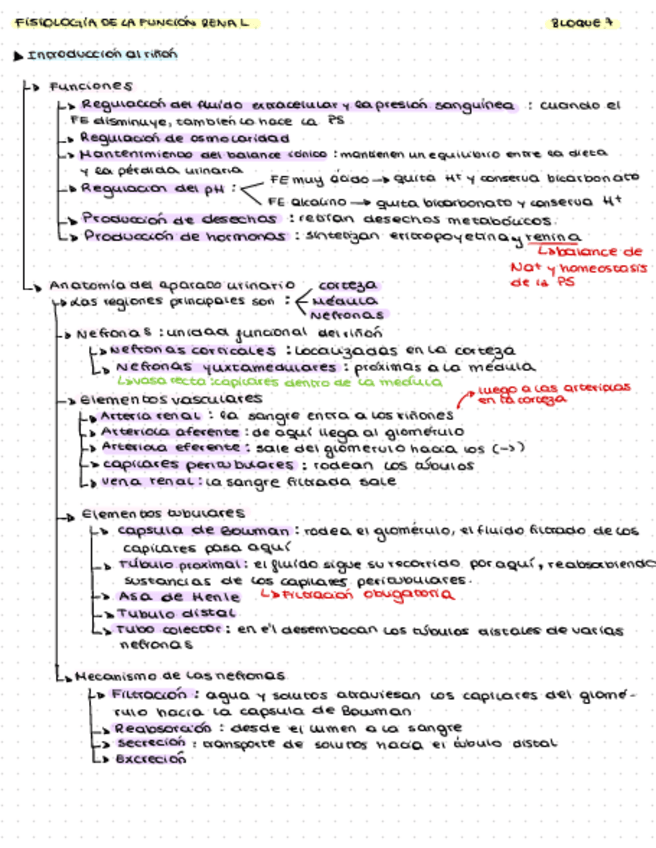 FISIOLOGÍA DE LA FUNCIÓN RENAL
BLOQUE 7
Introducción al riñón
Funciones
Regulación del fluido extracelular y la presión sanguínea : cuando el
FE disminuye, también lo hace la PS
Regulación de osmolaridad
Mantenimiento del balance iónico : mantienen un equilibrio entre la dieta
y la pérdida urinaria
Regulación del pH : FE muy ácido → quita H+ y conserva bicarbonato
FE alcalino → quita bicarbonato y conserva H+
Producción de desechos : retiran desechos metabólicos.
Producción de hormonas : sintetizan eritropoyetina y renina
balance de
Na+ y homeostasis
de la PS
Anatomía del aparato urinario
Las regiones principales son : corteza
Médula
Nefronas
Nefronas : unidad funcional del riñón
Nefronas corticales : localizadas en la corteza
Nefronas yuxtamedulares : próximas a la médula
vasa recta : capilares dentro de la médula
luego a las arteriolas
en la corteza
Elementos vasculares
Arteria renal : la sangre entra a los riñones
Arteriola aferente : de aquí llega al glomérulo
Arteriola eferente : sale del glomérulo hacia los (→)
capilares peritubulares : rodean los túbulos
vena renal : la sangre filtrada sale
Elementos tubulares
capsula de Bowman : rodea el glomérulo, el fluido filtrado de los
capilares pasa aquí
Túbulo proximal : el fluido sigue su recorrido por aquí, reabsorbiendo
sustancias de los capilares peritubulares.
Asa de Henle
Filtración obligatoria
Tubulo distal
Tubo colector : en él desembocan los túbulos distales de varias
nefronas
Mecanismo de las nefronas
Filtración : agua y solutos atraviesan los capilares del glomé-
rulo hacia la capsula de Bowman
Reabsorción : desde el lumen a la sangre
Secreción : transporte de solutos hacia el túbulo distal
Excreción